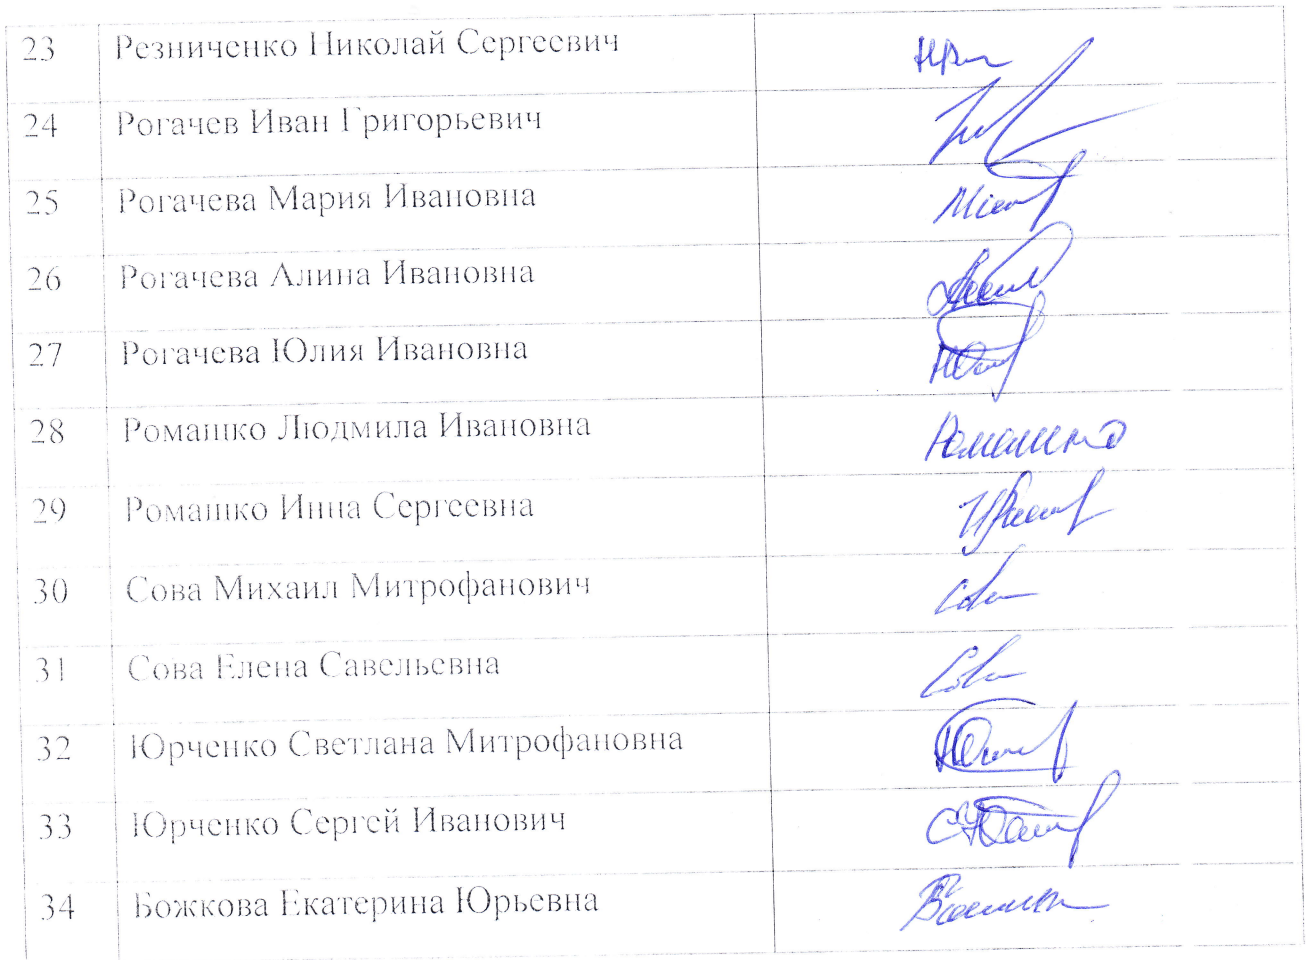 23 Резниченко Николай Сергеевич
24 Рогачев Иван Григорьевич
25 Рогачева Мария Ивановна
26 Рогачева Алина Ивановна
27 Рогачева Юлия Ивановна
28 Ромашко Людмила Ивановна
29 Ромашко Инна Сергеевна
30 Сова Михаил Митрофанович
31 Сова Елена Савельевна
32 Юрченко Светлана Митрофановна
33 Юрченко Сергей Иванович
34 Божкова Екатерина Юрьевна